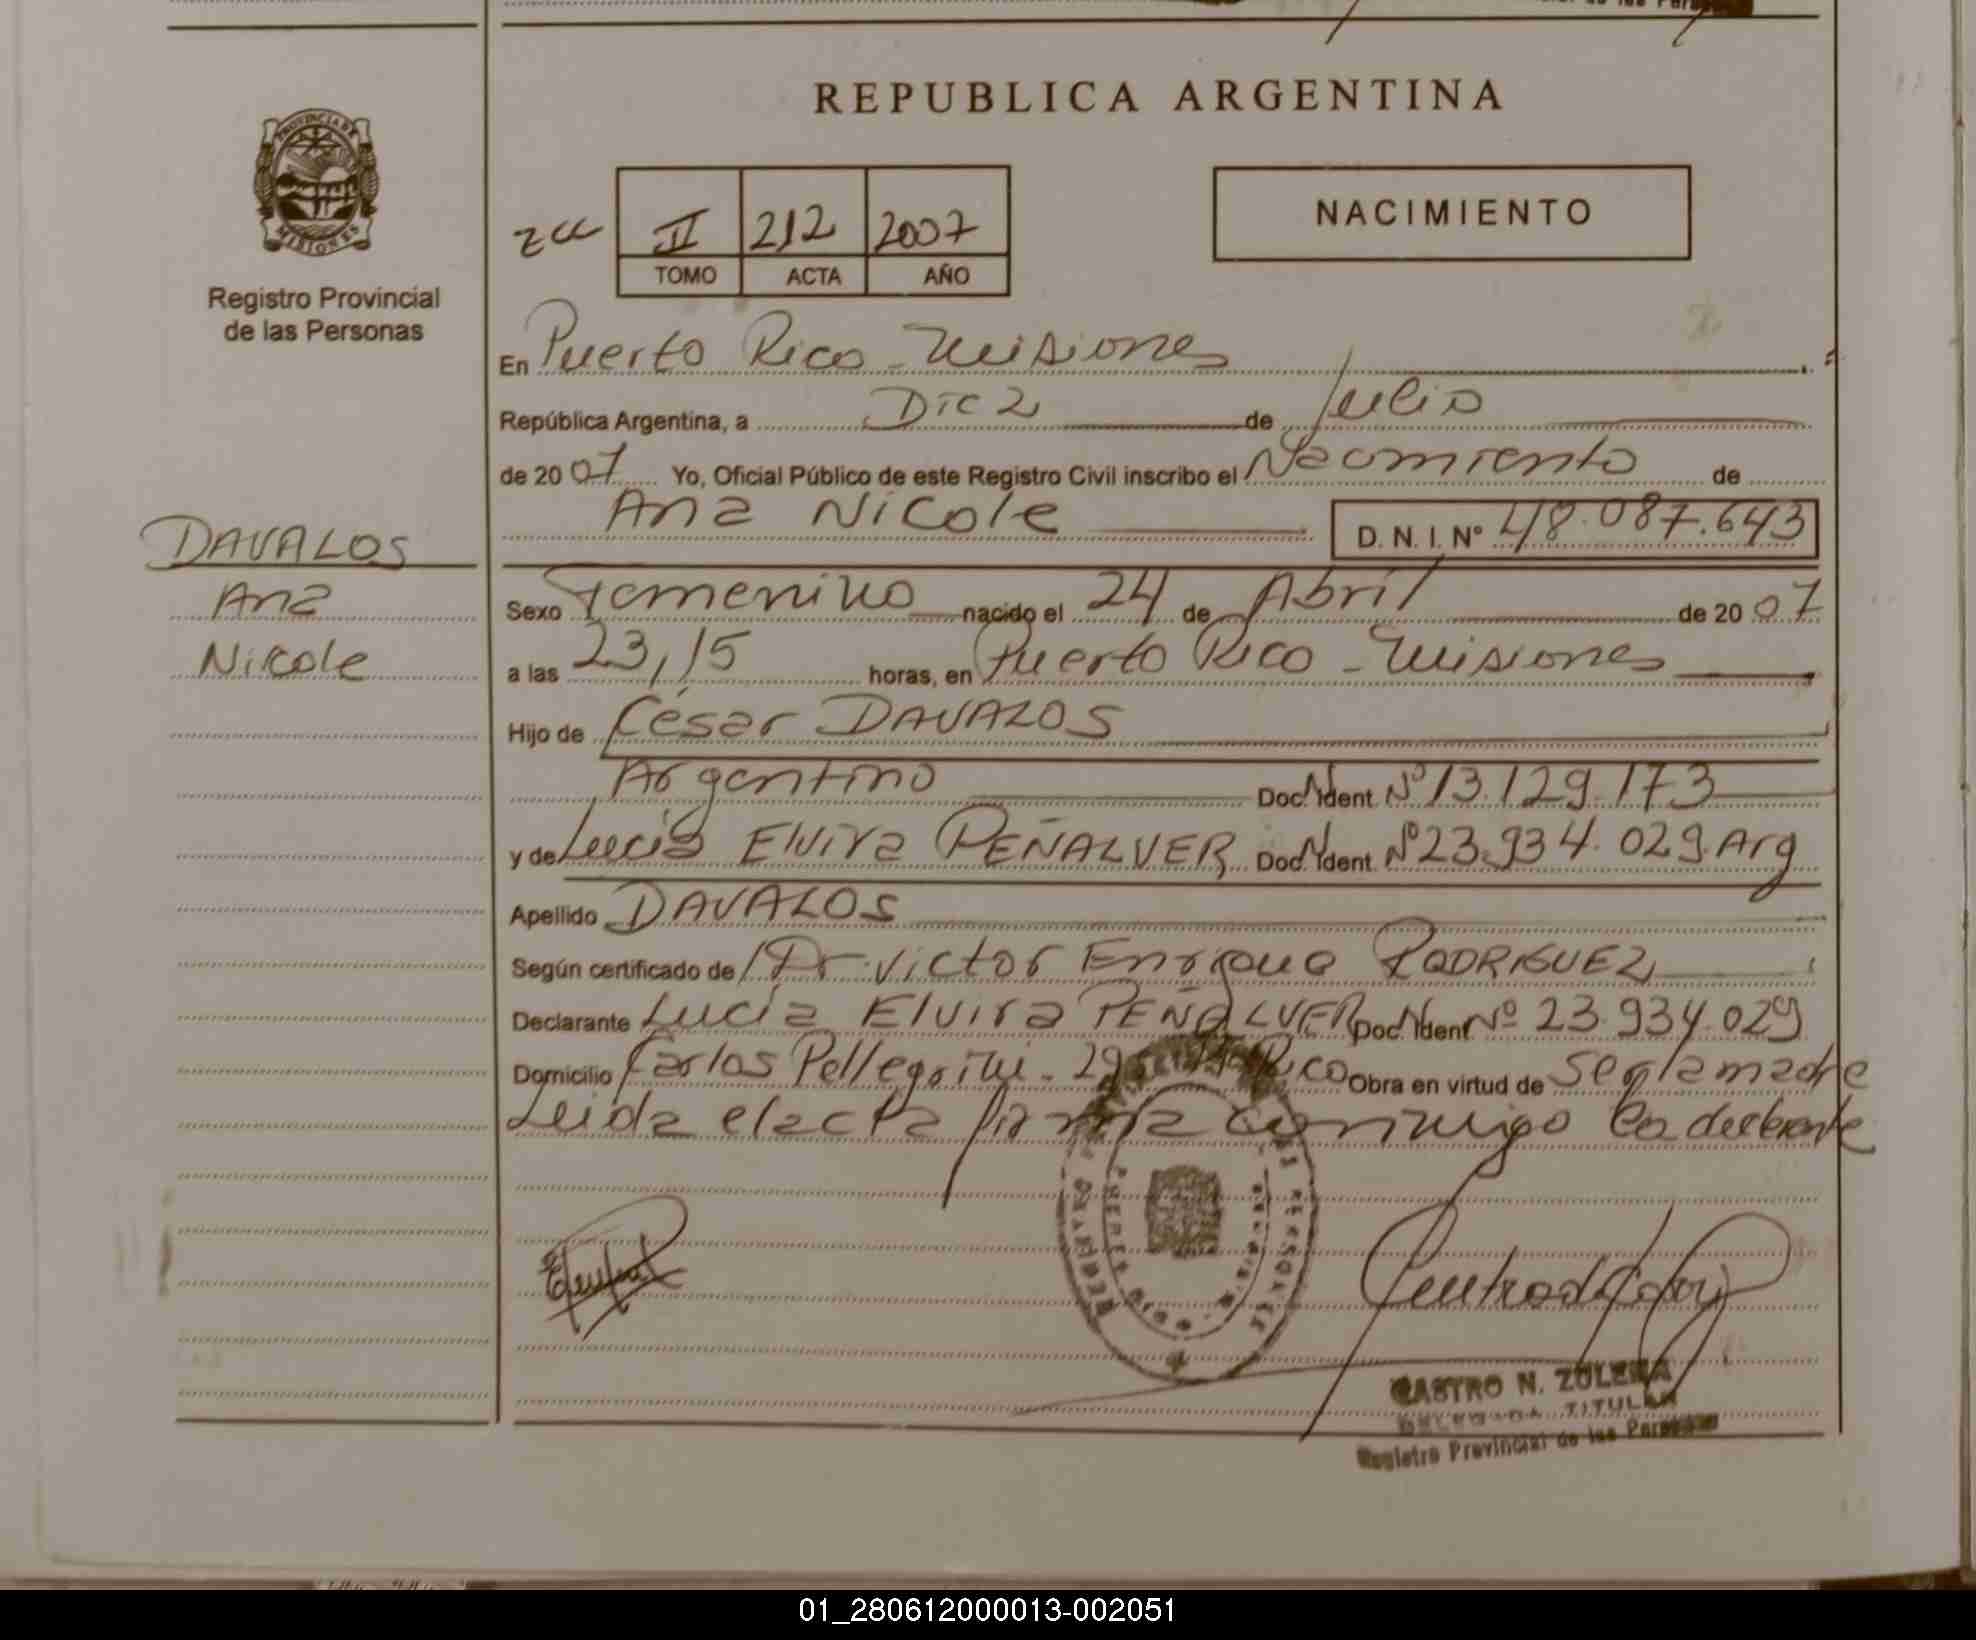 REPUBLICA ARGENTINA
PROVINCIA DE
MISIONES
Registro Provincial
de las Personas
II 212 2007
TOMO ACTA AÑO
NACIMIENTO
En Puerto Rico - Misiones
República Argentina, a Diez de Julio
de 2007 Yo, Oficial Público de este Registro Civil inscribo el Nacimiento de
Ana Nicole D. N. I. Nº 48.087.643
DAVALOS
Ana
Nicole
Sexo Femenino nacido el 24 de Abril de 2007
a las 23,15 horas, en Puerto Rico - Misiones
Hijo de César DAVALOS
Argentino Doc. Ident. Nº 13.129.173
y de Lucía Elvira PEÑALVER Doc. Ident. Nº 23.934.029. Arg
Apellido DAVALOS
Según certificado de Dr. Victor Enrique RODRIGUEZ
Declarante Lucía Elvira PEÑALVER Doc. Ident. Nº 23.934.029
Domicilio Carlos Pellegrini - Rico Obra en virtud de ser la madre
Leida el acta firma conmigo la declarante
CASTRO N. ZULEMA
DELEGADA TITULAR
Registro Provincial de las Personas
01_280612000013-002051